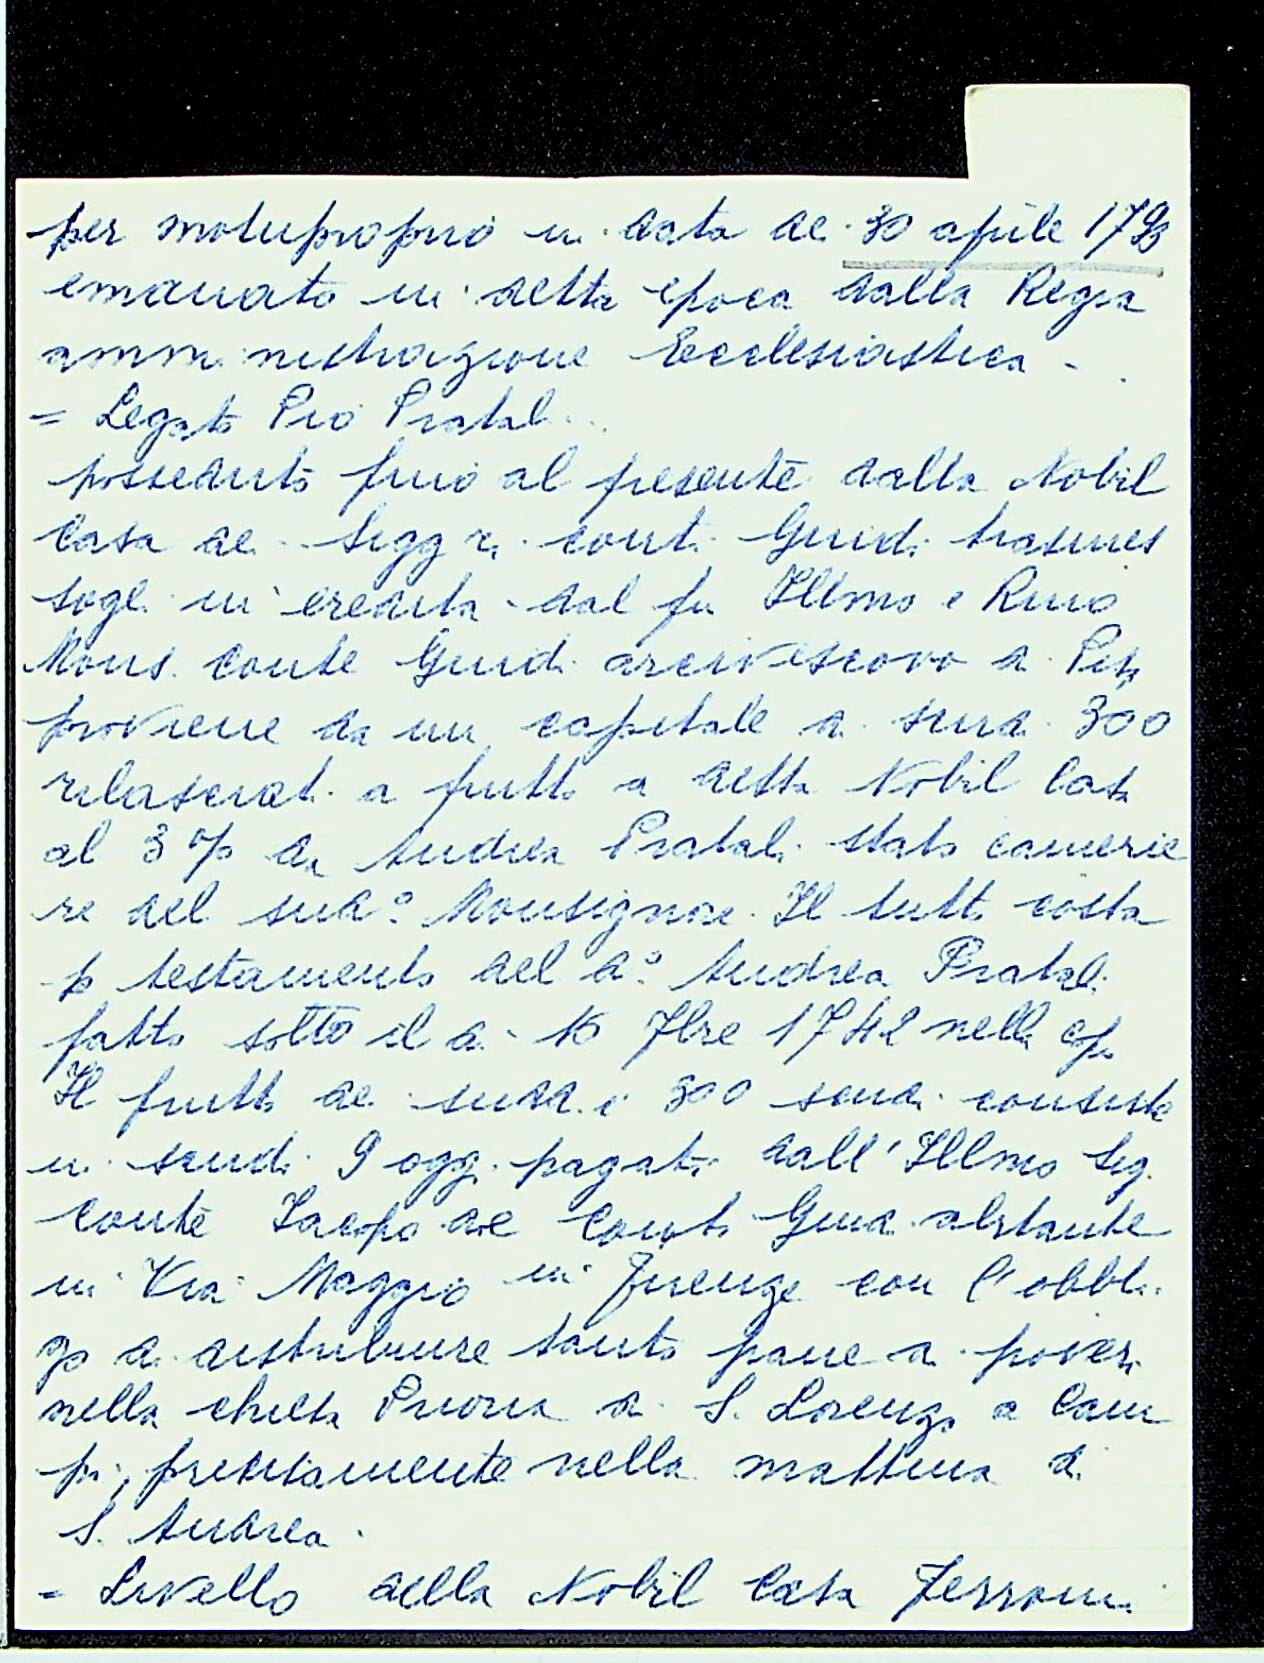 per motuproprio in data de 30 aprile 1793
emanato in detta epoca dalla Regia
amministrazione Ecclesiastica -
= Legato Pio Pratali
posseduto fino al presente dalla Nobil
Casa de Sigg ri conti Guidi trasmes
sogli in eredità dal fu Illmo e Rmo
Mons. Conte Guidi arcivescovo di Pisa
proviene da un capitale di scudi 300
rilasciati a frutto a detta Nobil Casa
al 3 % da Andrea Pratali stato camerie
re del sudº Monsignore. Il tutto costa
p testamento del dº Andrea Pratali
fatto sotto il dì 10 7bre 1742 nelle
Il frutto de sudd i 300 scudi consiste
in scudi 9 oggi pagati dall' Illmo Sig.
Conte Jacopo de Conti Guidi abitante
in Via Maggio in Firenze con l'obbli
go di distribuire tanto pane a poveri
nella chiesa Prioria di S. Lorenzo a Cam
pi, precisamente nella mattina di
S. Andrea.
= Livello della Nobil Casa Ferroni